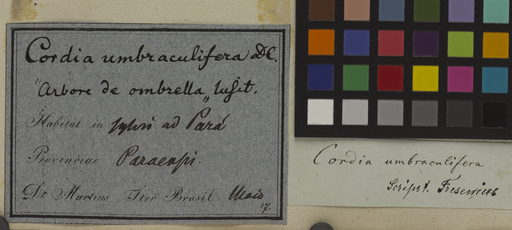 Cordia umbraculifera DC.
"Arbore de ombrella„ lusit.
Habitat in sylvis ad Pará
Provinciae Paraensi.
Dr Martius Iter Brasil Maio
17.
Cordia umbraculifera.
Scripst. Fresenius